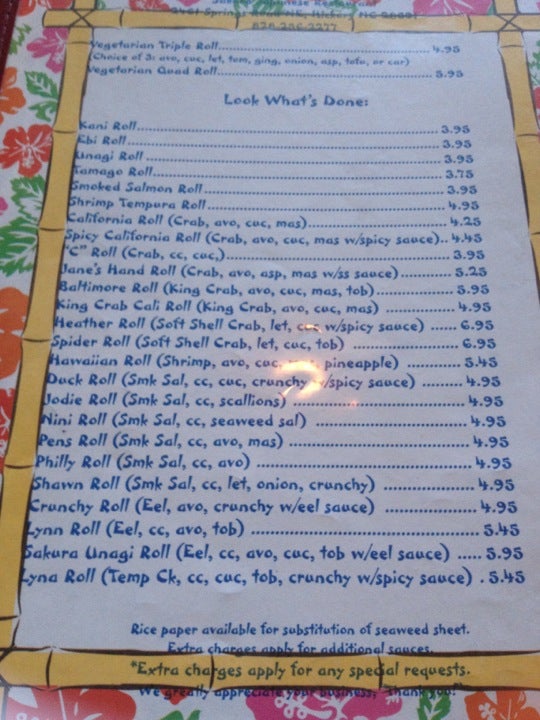 Japanese Restaurant
Springs Hickory NC
828 256 2277
Vegetarian Triple Roll........ 4.95
(Choice of 3: avo, cuc, let, tom, ging, onion, asp, tofu, or car)
Vegetarian Quad Roll........ 5.95
Look What's Done:
Kani Roll........ 3.95
Ebi Roll........ 3.95
Unagi Roll ........ 3.95
Tamago Roll........ 3.75
Smoked Salmon Roll ........ 3.95
Shrimp Tempura Roll ........ 4.95
California Roll (Crab, avo, cuc, mas)........ 4.25
Spicy California Roll (Crab, avo, cuc, mas w/spicy sauce).. 4.45
"C" Roll (Crab, cc, cuc,)........ 3.95
Jane's Hand Roll (Crab, avo, asp, mas w/ss sauce)........ 5.25
Baltimore Roll (King Crab, avo, cuc, mas, tob)........ 5.95
King Crab Cali Roll (King Crab, avo, cuc, mas) ........ 4.95
Heather Roll (Soft Shell Crab, let, cuc w/spicy sauce) ...... 6.95
Spider Roll (Soft Shell Crab, let, cuc, tob) ........ 6.95
Hawaiian Roll (Shrimp, avo, cuc, pineapple) ........ 5.45
Duck Roll (Smk Sal, cc, cuc, crunchy w/spicy sauce) ........ 4.95
Jodie Roll (Smk Sal, cc, scallions) ........ 4.95
Nini Roll (Smk Sal, cc, seaweed sal) ........ 4.95
Pen's Roll (Smk Sal, cc, avo, mas) ........ 4.95
Philly Roll (Smk Sal, cc, avo) ........ 4.95
Shawn Roll (Smk Sal, cc, let, onion, crunchy) ........ 4.95
Crunchy Roll (Eel, avo, crunchy w/eel sauce) ........ 4.95
Lynn Roll (Eel, cc, avo, tob) ........ 5.45
Sakura Unagi Roll (Eel, cc, avo, cuc, tob w/eel sauce) ..... 5.95
Lyna Roll (Temp Ck, cc, cuc, tob, crunchy w/spicy sauce) . 5.45
Rice paper available for substitution of seaweed sheet.
Extra charges apply for additional sauces.
*Extra charges apply for any special requests.
We greatly appreciate your business, "Thank you!"